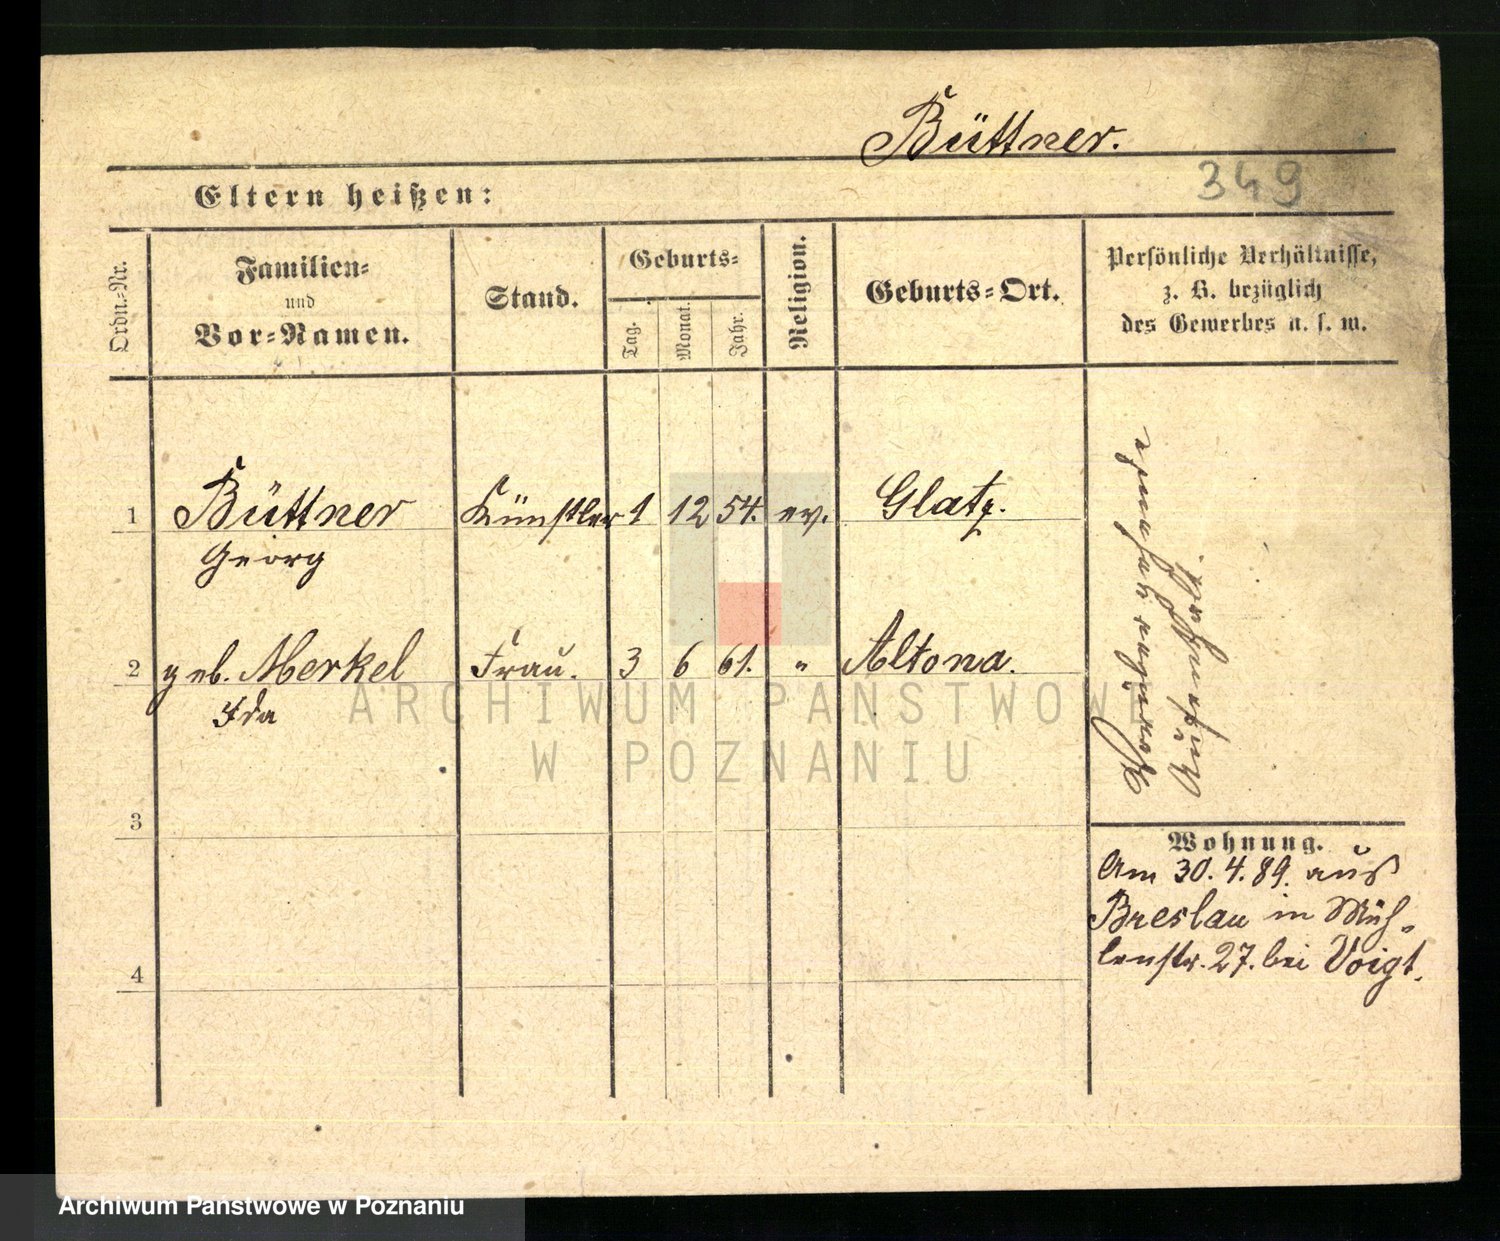 Büttner.
349
Eltern heißen:
Ordn.-Nr.
Familien-
und
Vor-Namen.
Stand.
Geburts-
Tag.
Monat.
Jahr.
Religion.
Geburts-Ort.
Persönliche Verhältnisse,
z. B. bezüglich
des Gewerbes u. s. w.
1 Büttner Künstler 1 12 54. ev. Glatz.
Georg
2 geb. Merkel Frau. 3 6 61. " Altona.
Ida
3
4
Wohnung.
Am 30.4.89. aus
Breslau in Müh-
lenstr. 27. bei Voigt.
ARCHIWUM PAŃSTWOWE
W POZNANIU
Archiwum Państwowe w Poznaniu